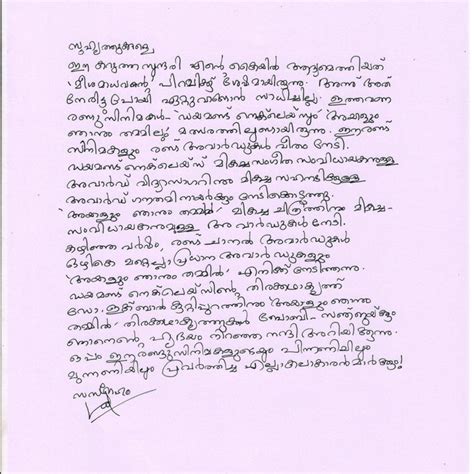 സുഹൃത്തുക്കളെ
ഈ കറുത്ത സുന്ദരി എന്റെ കൈയിൽ ആദ്യമെത്തിയത്
'മീശമാധവൻ' പിറവിക്ക് ശേഷമായിരുന്നു. അന്ന് അത്
നേരിട്ടു പോയി ഏറ്റുവാങ്ങാൻ സാധിച്ചില്ല. ഇത്തവണ
രണ്ടു സിനിമകൾ- 'ഡയമണ്ട് നെക്‌ലെയ്സും' 'അയാളും
ഞാനും തമ്മിലു'ം മത്സരത്തിലുണ്ടായിരുന്നു. ഈ രണ്ട്
സിനിമകളും രണ്ട് അവാർഡുകൾ വീതം നേടി.
ഡയമണ്ട് നെക്‌ലെയ്സ് മികച്ച സംഗീത സംവിധായകനുള്ള
അവാർഡ് വിദ്യാസാഗറിനും മികച്ച സഹനടിക്കുള്ള
അവാർഡ് ഗൗതമി നായർക്കും നേടിക്കൊടുത്തു.
'അയാളും ഞാനും തമ്മിൽ' മികച്ച ചിത്രത്തിനും മികച്ച-
സംവിധായകനുമുള്ള അവാർഡുകൾ നേടി.
കഴിഞ്ഞ വർഷം, രണ്ട് ചാനൽ അവാർഡുകൾ
ഒഴികെ മറ്റെല്ലാ പ്രധാന അവാർഡുകളും
'അയാളും ഞാനും തമ്മിൽ' എനിക്ക് നേടിത്തന്നു.
ഡയമണ്ട് നെക്‌ലെയ്സിന്റെ തിരക്കഥാകൃത്ത്
ഡോ. ഇക്ബാൽ കുറ്റിപ്പുറത്തിനും 'അയാളും ഞാനും
തമ്മിൽ' തിരക്കഥാകൃത്തുക്കൾ ബോബി- സഞ്ജയ്ക്കും
ഞാനെന്റെ ഹൃദയം നിറഞ്ഞ നന്ദി അറിയിക്കുന്നു.
ഒപ്പം ഈ രണ്ടു സിനിമകളുടെയും പിന്നണിയിലും
മുന്നണിയിലും പ്രവർത്തിച്ച എല്ലാ കലാകാരൻമാർക്കും!
സസ്നേഹം